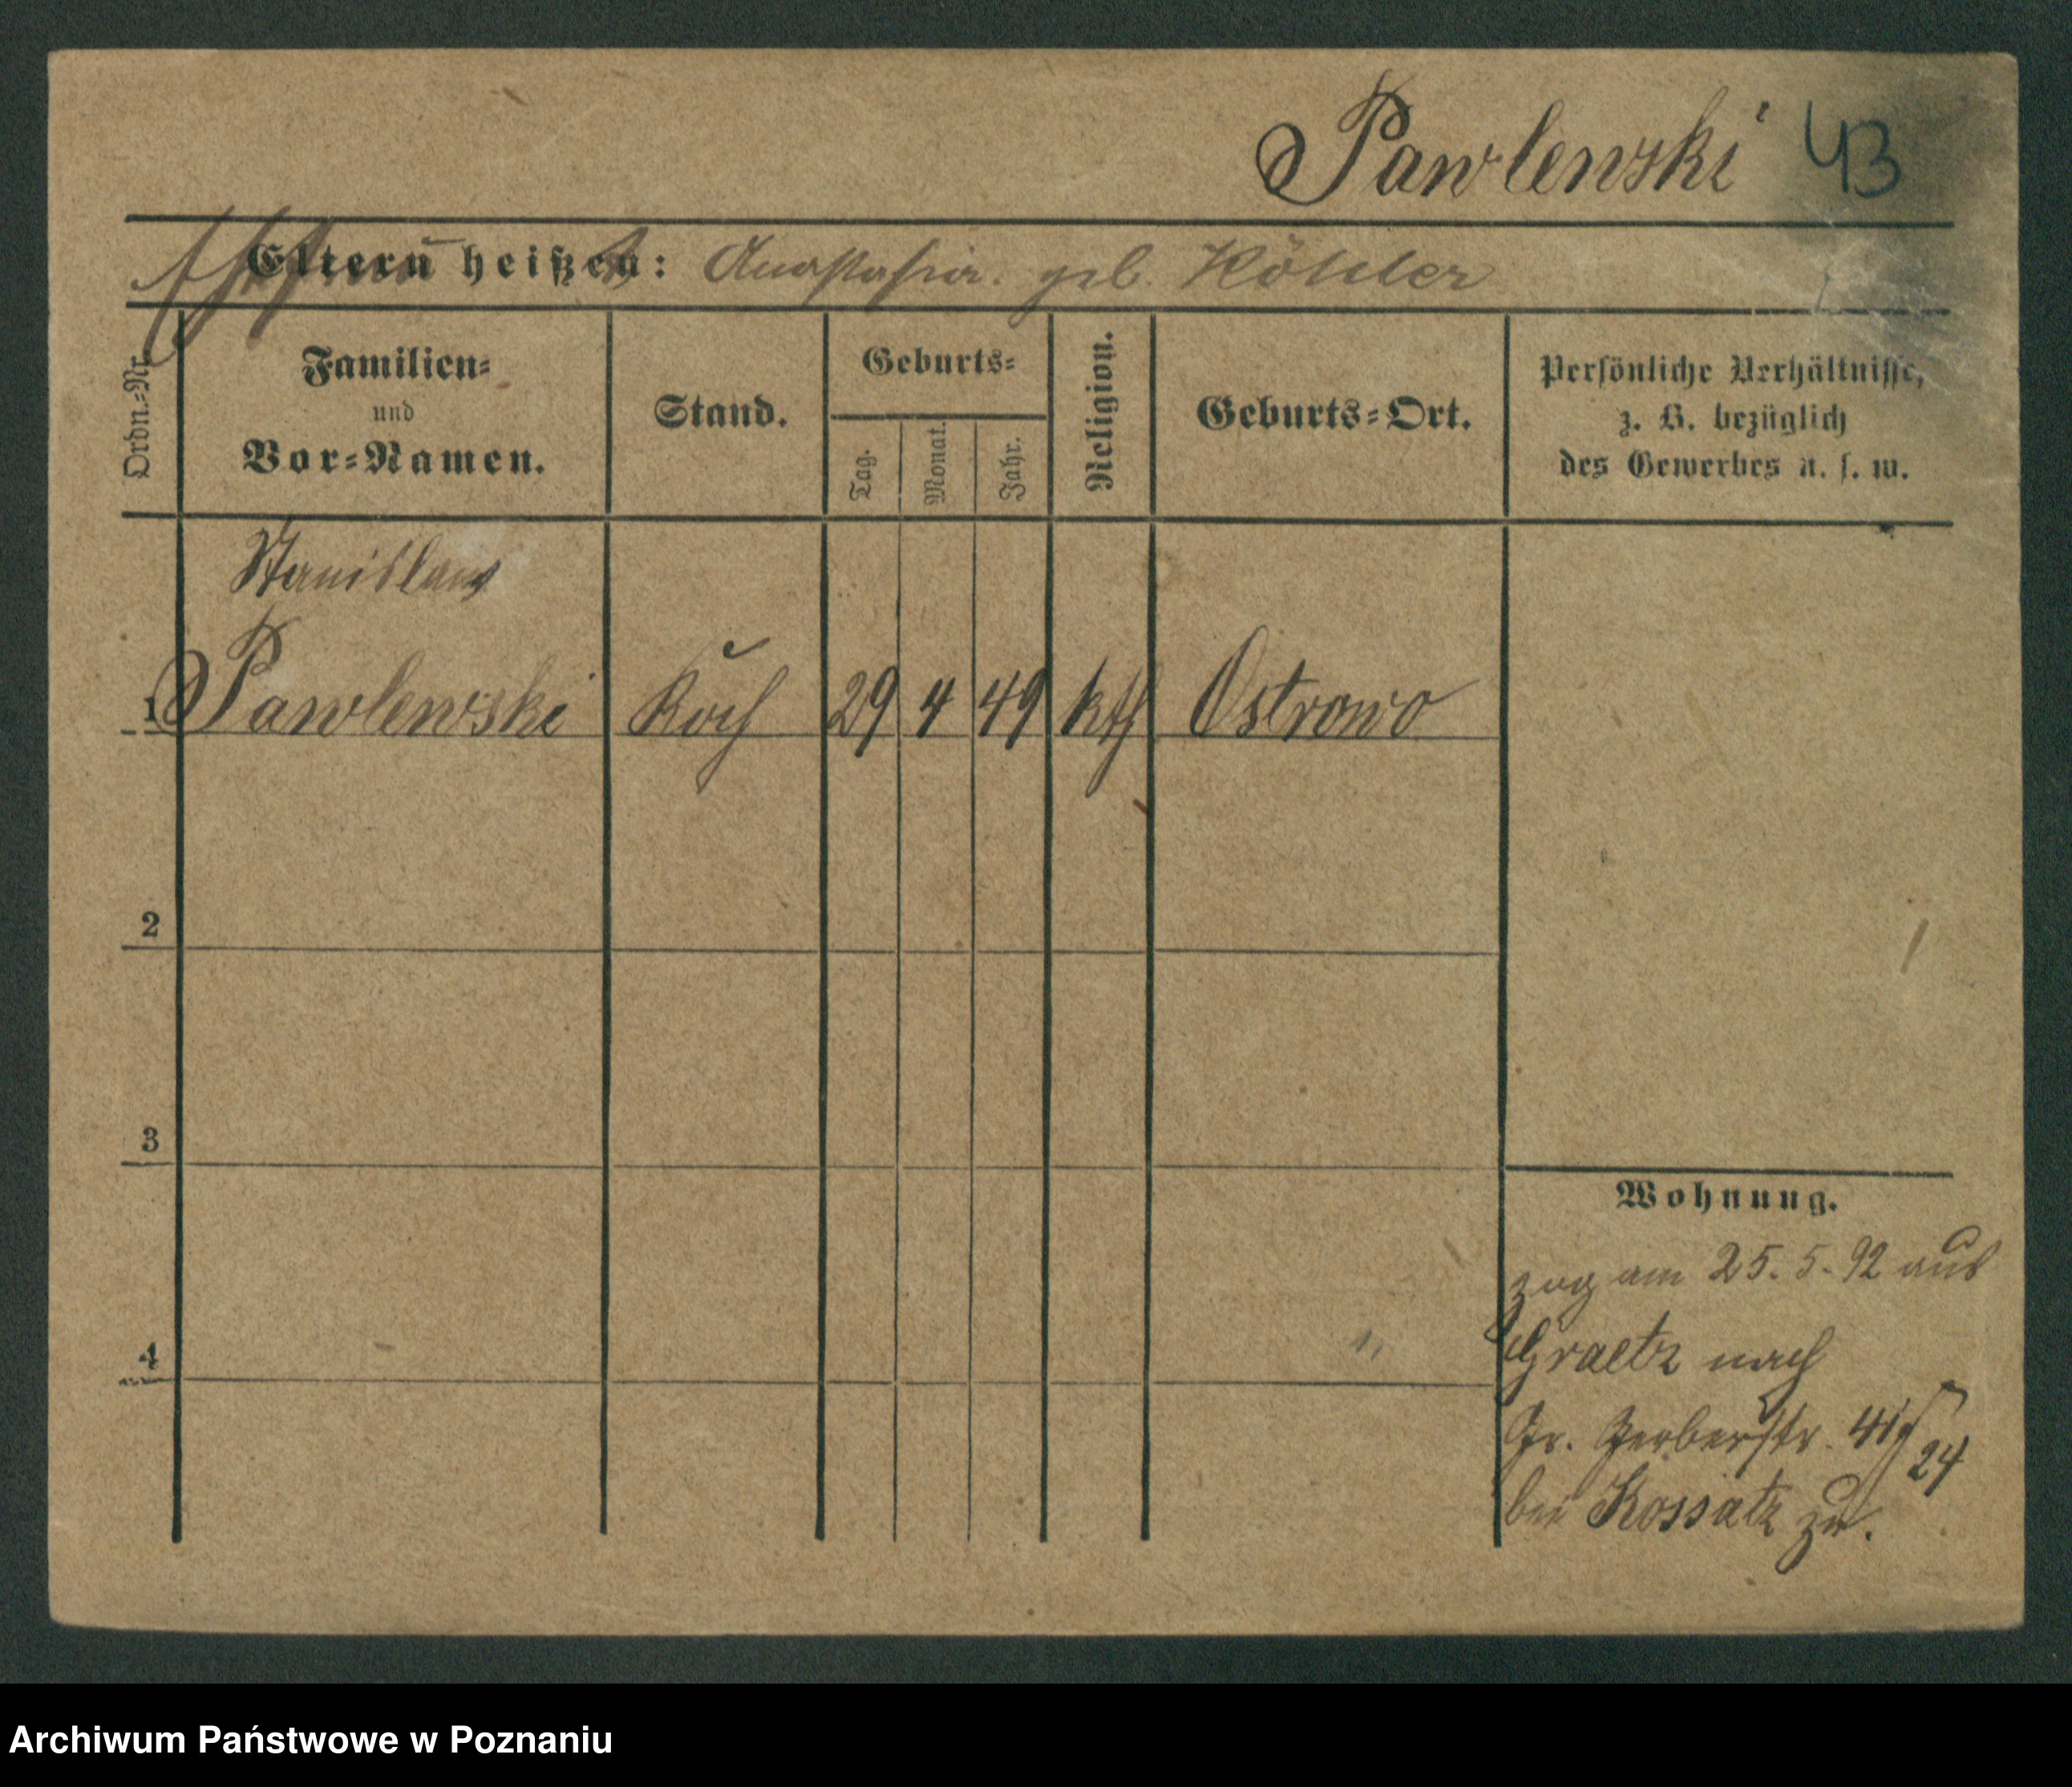 Pawlewski 43
Eltern heißen: Anastasia. geb. Köhler
Ordn.-Nr.
Familien-
und
Vor-Namen.
Stand.
Geburts-
Tag.
Monat.
Jahr.
Religion.
Geburts-Ort.
Persönliche Verhältnisse,
z. B. bezüglich
des Gewerbes u. s. w.
Stanislaus
1 Pawlewski Koch 29 4 49 kth Ostrowo
2
3
4
Wohnung.
zog am 25. 5. 92 aus
Graetz nach
Gr. Gerberstr. 41
24
bei Kossatz zu.
Archiwum Państwowe w Poznaniu